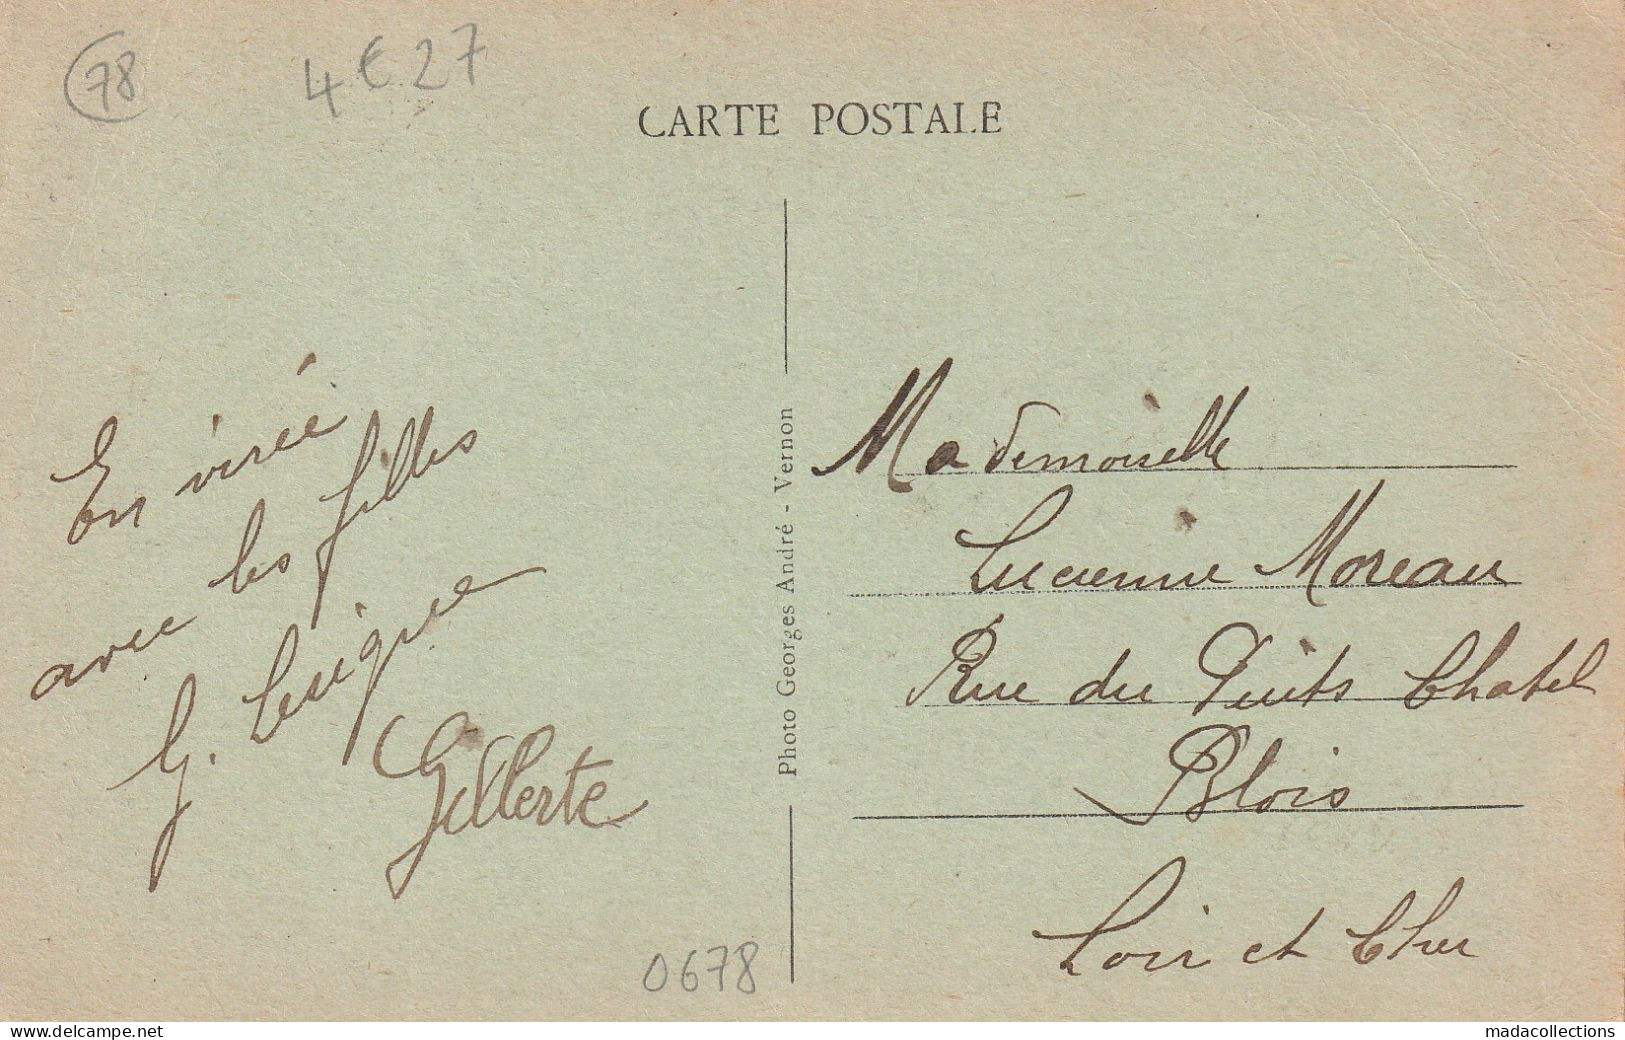 78
4€27
CARTE POSTALE
En virée
avec les filles
G.
Gilberte
Photo Georges André - Vernon
Mademoiselle
Lucienne Moreau
Rue du Puits Chatel
Blois
Loir et Cher
0678
www.delcampe.net
madacollections